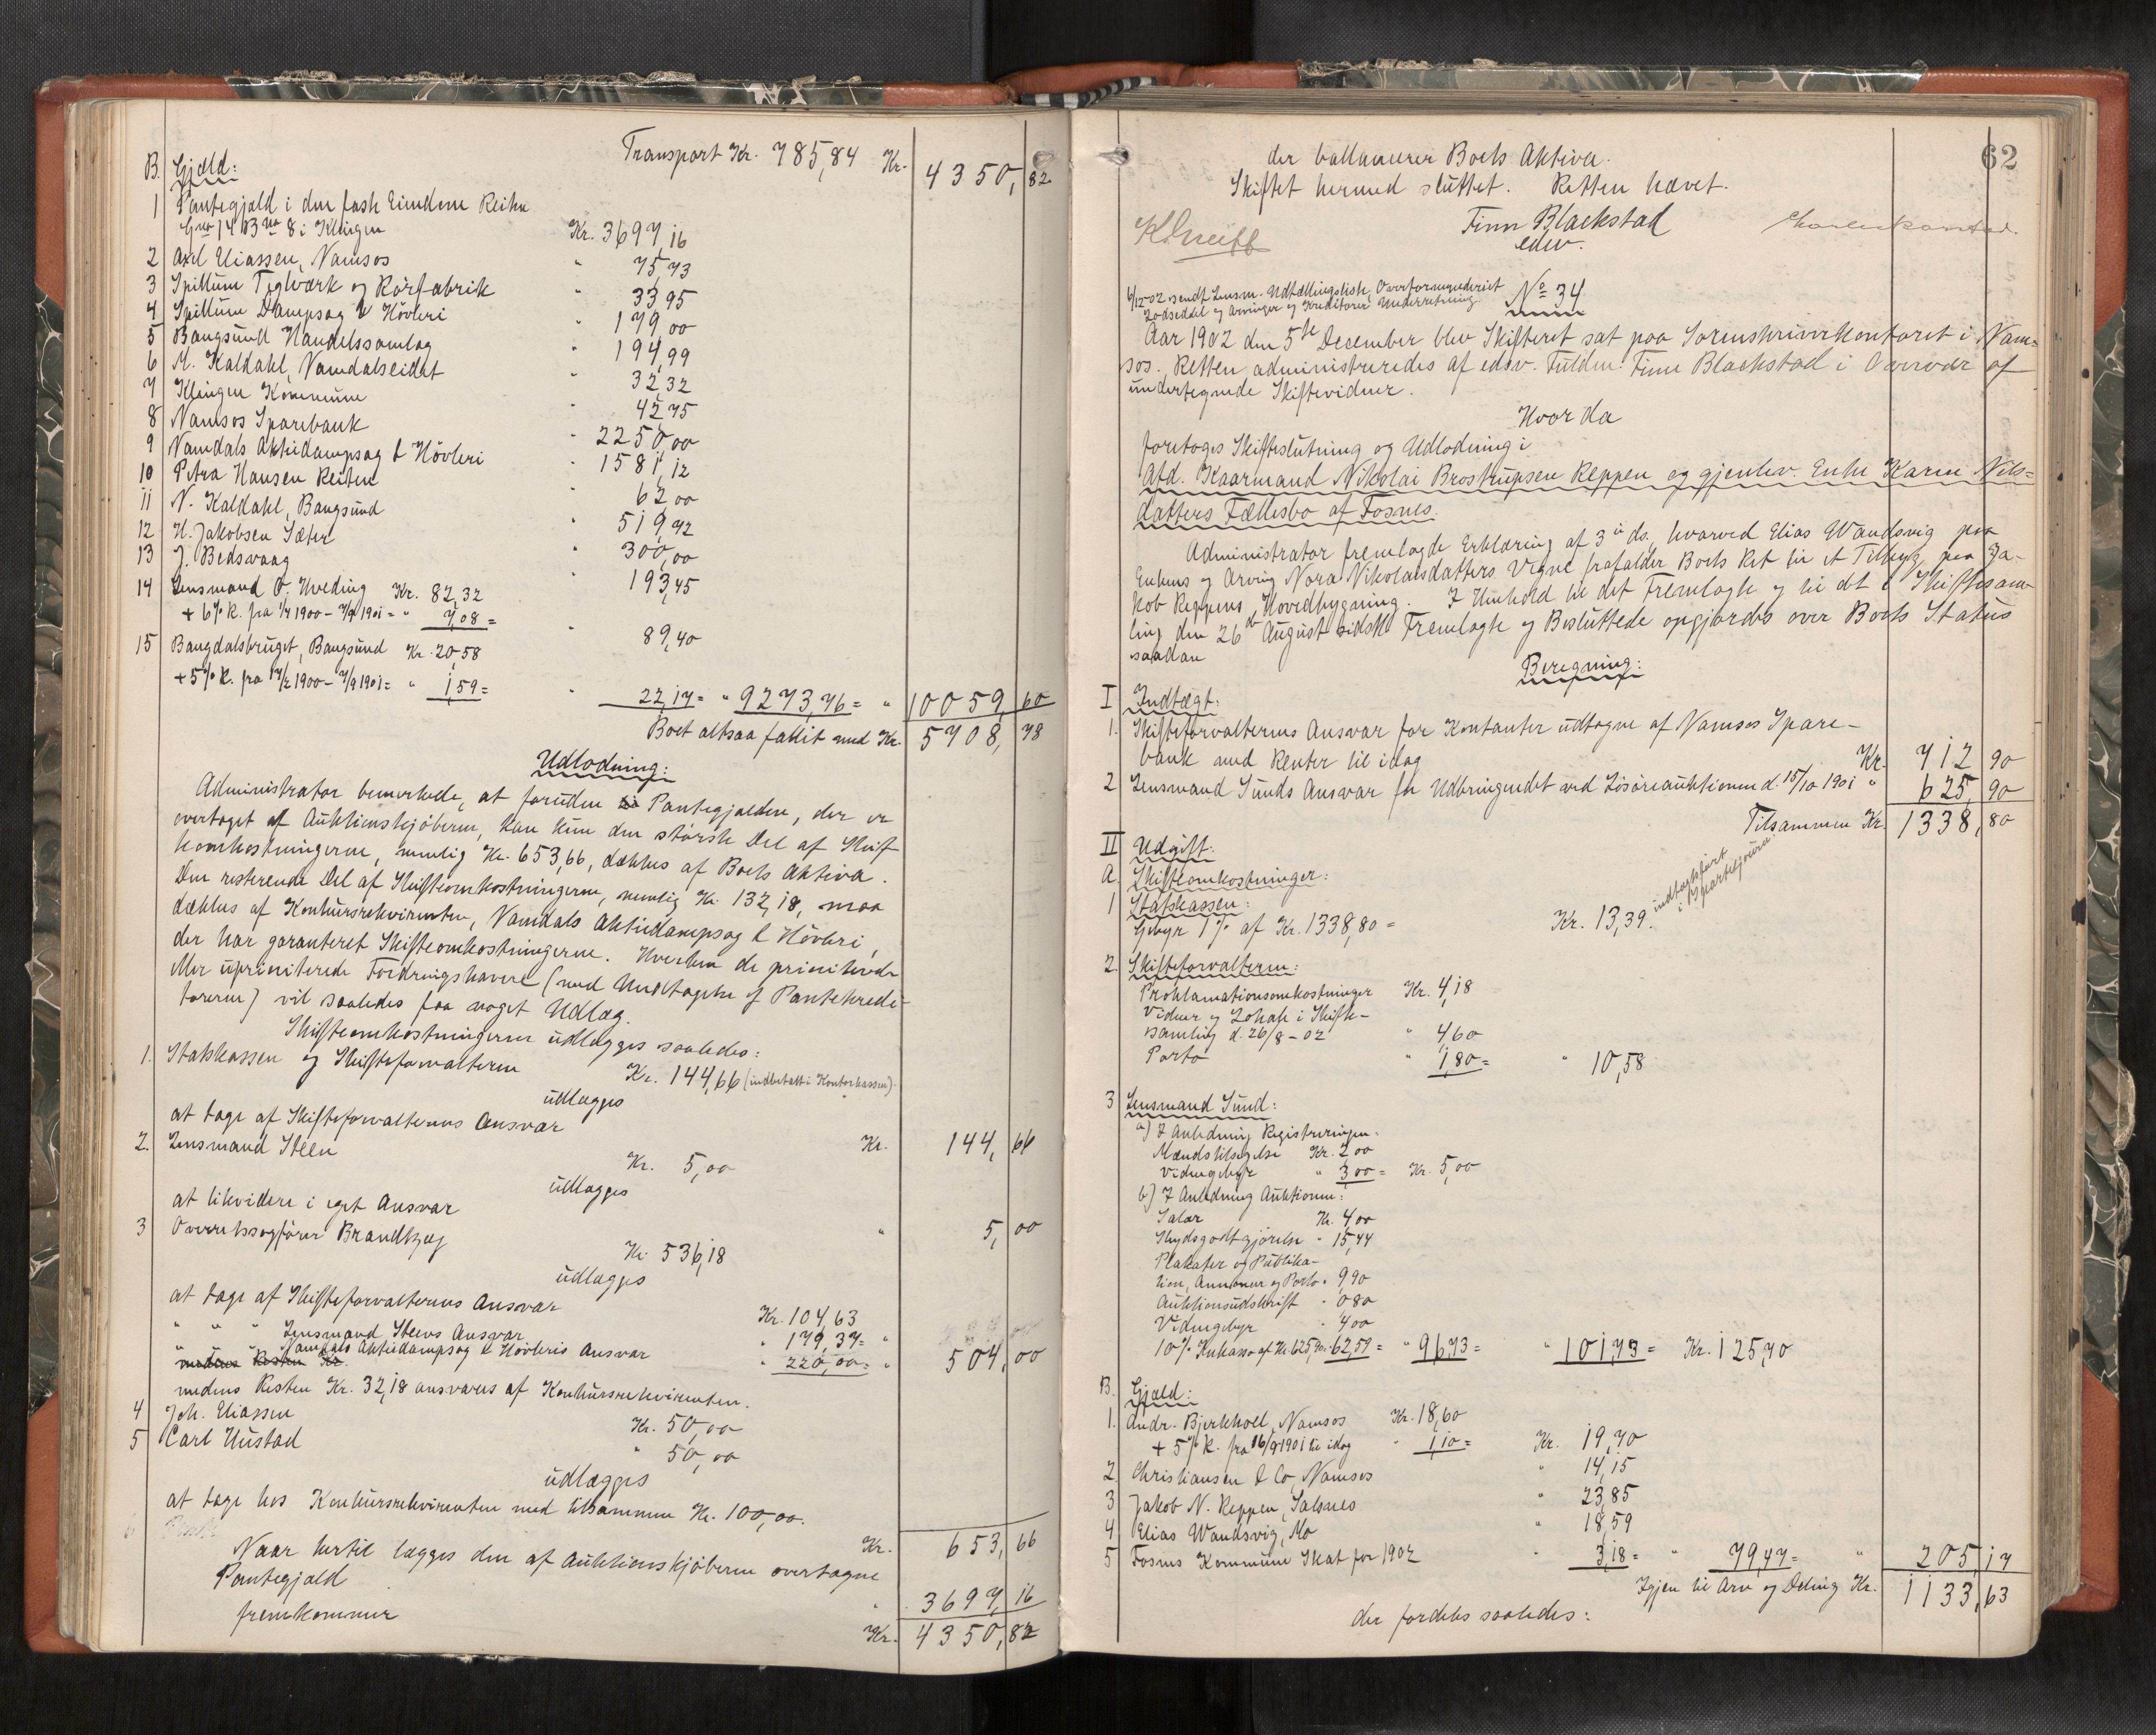 Transport Kr. 785,84 Kr. 4350,82
B. Gjæld:
1 Pantegjæld i den faste Eiendom Reiten
Gno 14 Bno 8 i Klingen Kr. 3697,16
2 Axel Eliassen, Namsos " 75,73
3 Spillum Teglværk og Rørfabrik " 33,95
4 Spillum Dampsag & Høvleri " 179,00
5 Bangsund Handelssamlag " 194,99
6 M. Kaldahl, Namdalseidet " 32,32
7 Klingen Kommune " 42,75
8 Namsos Sparebank " 2250,00
9 Namdals Aktiedampsag & Høvleri " 1581,12
10 Petra Hansen Reiten " 62,00
11 N. Kaldahl, Bangsund " 519,72
12 H. Jakobsen Sæter " 300,00
13 J. Bedsvaag " 193,45
14 Lensmand O. Hveding Kr. 82,32
+ 6% R. fra 1/4 1900 - 7/9 1901 = " 7,08 = " 89,40
15 Bangdalsbruget, Bangsund Kr. 20,58
+ 5% R. fra 17/2 1900 - 7/9 1901 = " 1,59 = " 22,17 = " 9273,76 = " 10059,60
Boet altsaa fallit med Kr. 5708,78
Udlodning:
Administrator bemerkede, at foruden Pantegjælden, der er
overtaget af Auktionskjøberen, kan kun den største Del af Skift
komkostningerne, nemlig Kr. 653,66, dækkes af Boets Aktiva.
Den resterende Del af Skifteomkostningerne, nemlig Kr. 132,18, maa
dækkes af Konkursrekvirenten, Namdals Aktiedampsag & Høvleri,
der har garanteret Skifteomkostningerne. Hverken de prioriterede
eller uprioriterede Fordringshavere (med Undtagelse af Pantekredi-
torerne) vil saaledes faa noget Udlæg.
Skifteomkostningerne udlægges saaledes:
1. Statskassen og Skifteforvalteren Kr. 144,66 (indbetalt i Kontorkassen).
udlægges
at tage af Skifteforvalterens Ansvar Kr. 144,66
2. Lensmand Steen Kr. 5,00
udlægges
at likvidere i eget Ansvar " 5,00
3 Overretssagfører Brandtzæg Kr. 536,18
udlægges
at tage af Skifteforvalterens Ansvar Kr. 104,63
" " " Lensmand Steens Ansvar " 179,37 = "
" " Namdals Aktiedampsag & Høvleris Ansvar " 220,00 = " 504,00
medens Resten Kr.
medens Resten Kr. 32,18 ansvares af Konkursrekvirenten.
4 Joh. Eliassen Kr. 50,00
5 Carl Hustad " 50,00
udlægges
at tage hos Konkursrekvirenten med tilsammen Kr. 100,00.
Kr. 653,66
Naar hertil lægges den af Auktionskjøberen overtagne
Pantegjæld " 3697,16
fremkommer Kr. 4350,82
62
der ballancerer Boets Aktiva.
Skiftet hermed sluttet. Retten hævet.
Finn Blackstad
edsv.
6/12-02 sendt Lensm. Udtællingsliste, Overformynderiet
Lodseddel og Arvinger og Kreditorer Underretning
No 34
Aar 1902 den 5te December blev Skifteret sat paa Sorenskriverkontoret i Nam-
sos. Retten administreredes af edsv. Fuldm. Finn Blackstad i Overvær af
undertegnede Skiftevidner.
Hvor da
foretoges Skifteslutning og Udlodning i
Afd. Kaarmand Nikolai Brostrupsen Reppen og gjenlev. Enke Karen Nils-
datters Fællesbo af Fosnes.
Administrator fremlagde Erklæring af 3die ds., hvorved Elias Wandsvig paa
Enkens og Arving Nora Nikolaisdatters Vegne frafalder Boets Ret til et Tilbyg paa Ja-
kob Reppens Hovedbygning. I Henhold til det Fremlagte og til det i Skiftesam-
ling den 26de August sidstl. Fremlagte og Besluttede opgjordes over Boets Status
saadan
Beregning:
I Indtægt:
1. Skifteforvalterens Ansvar for Kontanter udtagne af Namsos Spare-
bank med Renter til idag Kr. 712,90
2 Lensmand Sunds Ansvar for Udbringendet ved Løsøreauktionen d. 15/10 1901 " 625,90
Tilsammen Kr. 1338,80
II Udgift:
A. Skifteomkostninger:
1 Statskassen:
Gebyr 1% af Kr. 1338,80 = Kr. 13,39. indtægtsført
i Sporteljour.
2. Skifteforvalteren:
Proklamationsomkostninger Kr. 4,18
Vidner og Lokale i Skifte-
samling d. 26/8-02 " 4,60
Porto " 1,80 = " 10,58
3 Lensmand Sund:
a) I Anledning Registreringen.
Mændstilsigelse Kr. 2,00
Vidnegebyr " 3,00 = Kr. 5,00
b) I Anledning Auktionen:
Salær Kr. 4,00
Skydsgodtgjørelse " 15,44
Plakater og Publika-
tion, Annoncer og Porto " 9,90
Auktionsudskrift " 0,80
Vidnegebyr " 4,00
10% Inkasso af Kr. 625,90. 62,59 = " 96,73 = " 101,73 = Kr. 125,70
B. Gjæld:
1. Andr. Bjerkhoel, Namsos Kr. 18,60
+ 5% R. fra 16/9 1901 til idag " 1,10 = Kr. 19,70
2 Christiansen & Co, Namsos " 14,15
3 Jakob N. Reppen, Salsnes " 23,85
4 Elias Wandsvig, Mo " 18,59
5 Fosnes Kommune Skat for 1902 " 3,18 = " 79,47 = " 205,17
Igjen til Arv og Deling Kr. 1133,63
der fordeles saaledes: